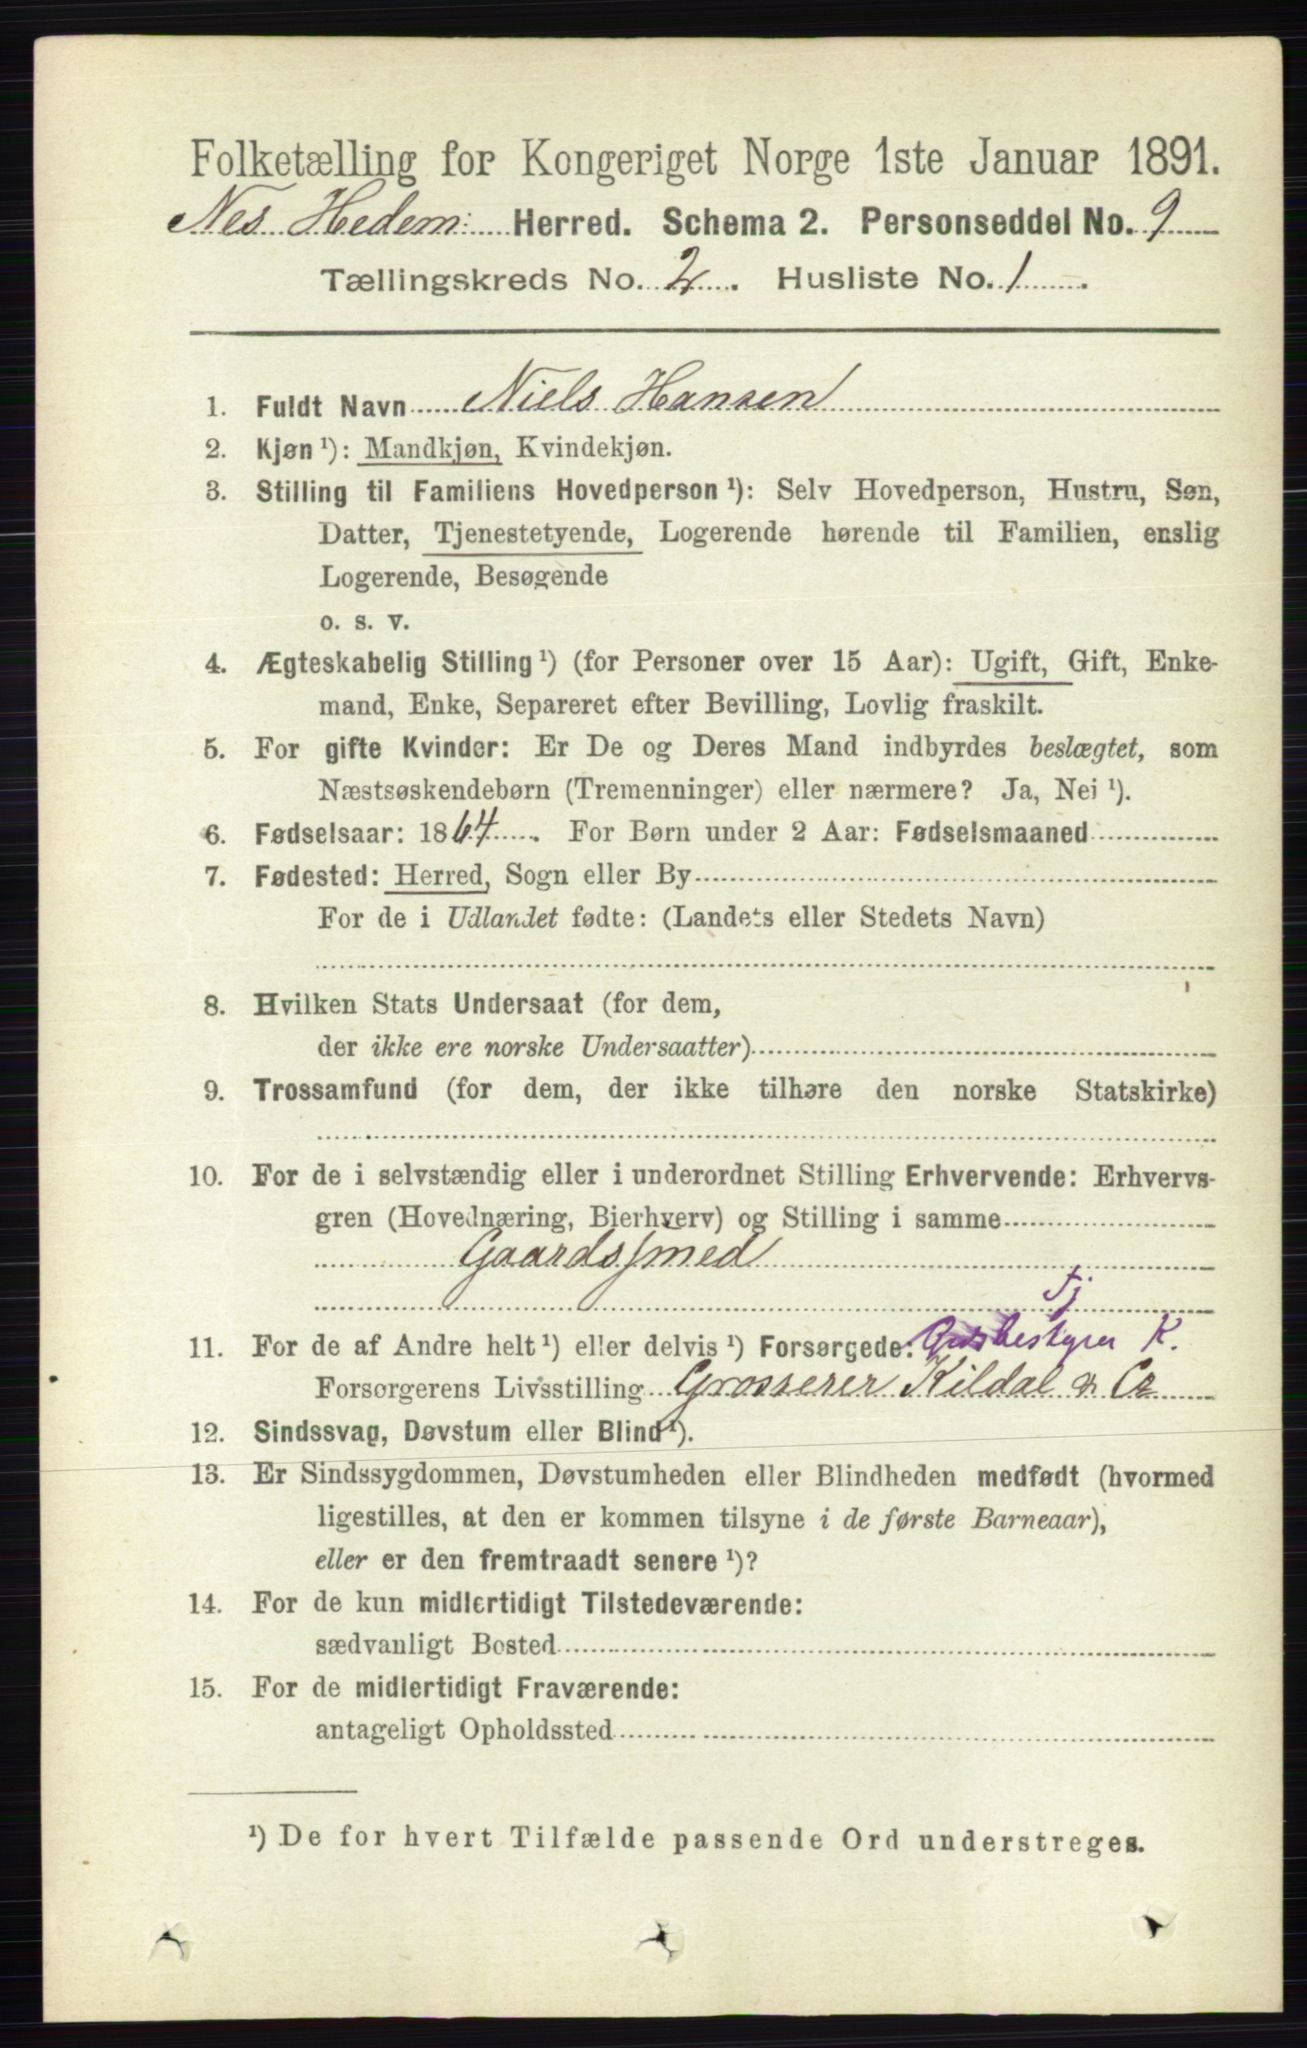 Folketælling for Kongeriget Norge 1ste Januar 1891.
Nes Hedem: Herred. Schema 2. Personseddel No. 9
Tællingskreds No. 2. Husliste No. 1.
1. Fuldt Navn Niels Hansen
2. Kjøn ¹): Mandkjøn, Kvindekjøn.
3. Stilling til Familiens Hovedperson ¹): Selv Hovedperson, Hustru, Søn,
Datter, Tjenestetyende, Logerende hørende til Familien, enslig
Logerende, Besøgende
o. s. v.
4. Ægteskabelig Stilling ¹) (for Personer over 15 Aar): Ugift, Gift, Enke-
mand, Enke, Separeret efter Bevilling, Lovlig fraskilt.
5. For gifte Kvinder: Er De og Deres Mand indbyrdes beslægtet, som
Næstsøskendebørn (Tremenninger) eller nærmere? Ja, Nei ¹).
6. Fødselsaar: 1864. For Børn under 2 Aar: Fødselsmaaned
7. Fødested: Herred, Sogn eller By
For de i Udlandet fødte: (Landets eller Stedets Navn)
8. Hvilken Stats Undersaat (for dem,
der ikke ere norske Undersaatter)
9. Trossamfund (for dem, der ikke tilhøre den norske Statskirke)
10. For de i selvstændig eller i underordnet Stilling Erhvervende: Erhvervs-
gren (Hovednæring, Bierhverv) og Stilling i samme
Gaardssmed
Tj
11. For de af Andre helt ¹) eller delvis ¹) Forsørgede: Gaardsbestyrer K.
Forsørgerens Livsstilling Grosserer Kildal & Co
12. Sindssvag, Døvstum eller Blind ¹).
13. Er Sindssygdommen, Døvstumheden eller Blindheden medfødt (hvormed
ligestilles, at den er kommen tilsyne i de første Barneaar),
eller er den fremtraadt senere ¹)?
14. For de kun midlertidigt Tilstedeværende:
sædvanligt Bosted
15. For de midlertidigt Fraværende:
antageligt Opholdssted
¹) De for hvert Tilfælde passende Ord understreges.